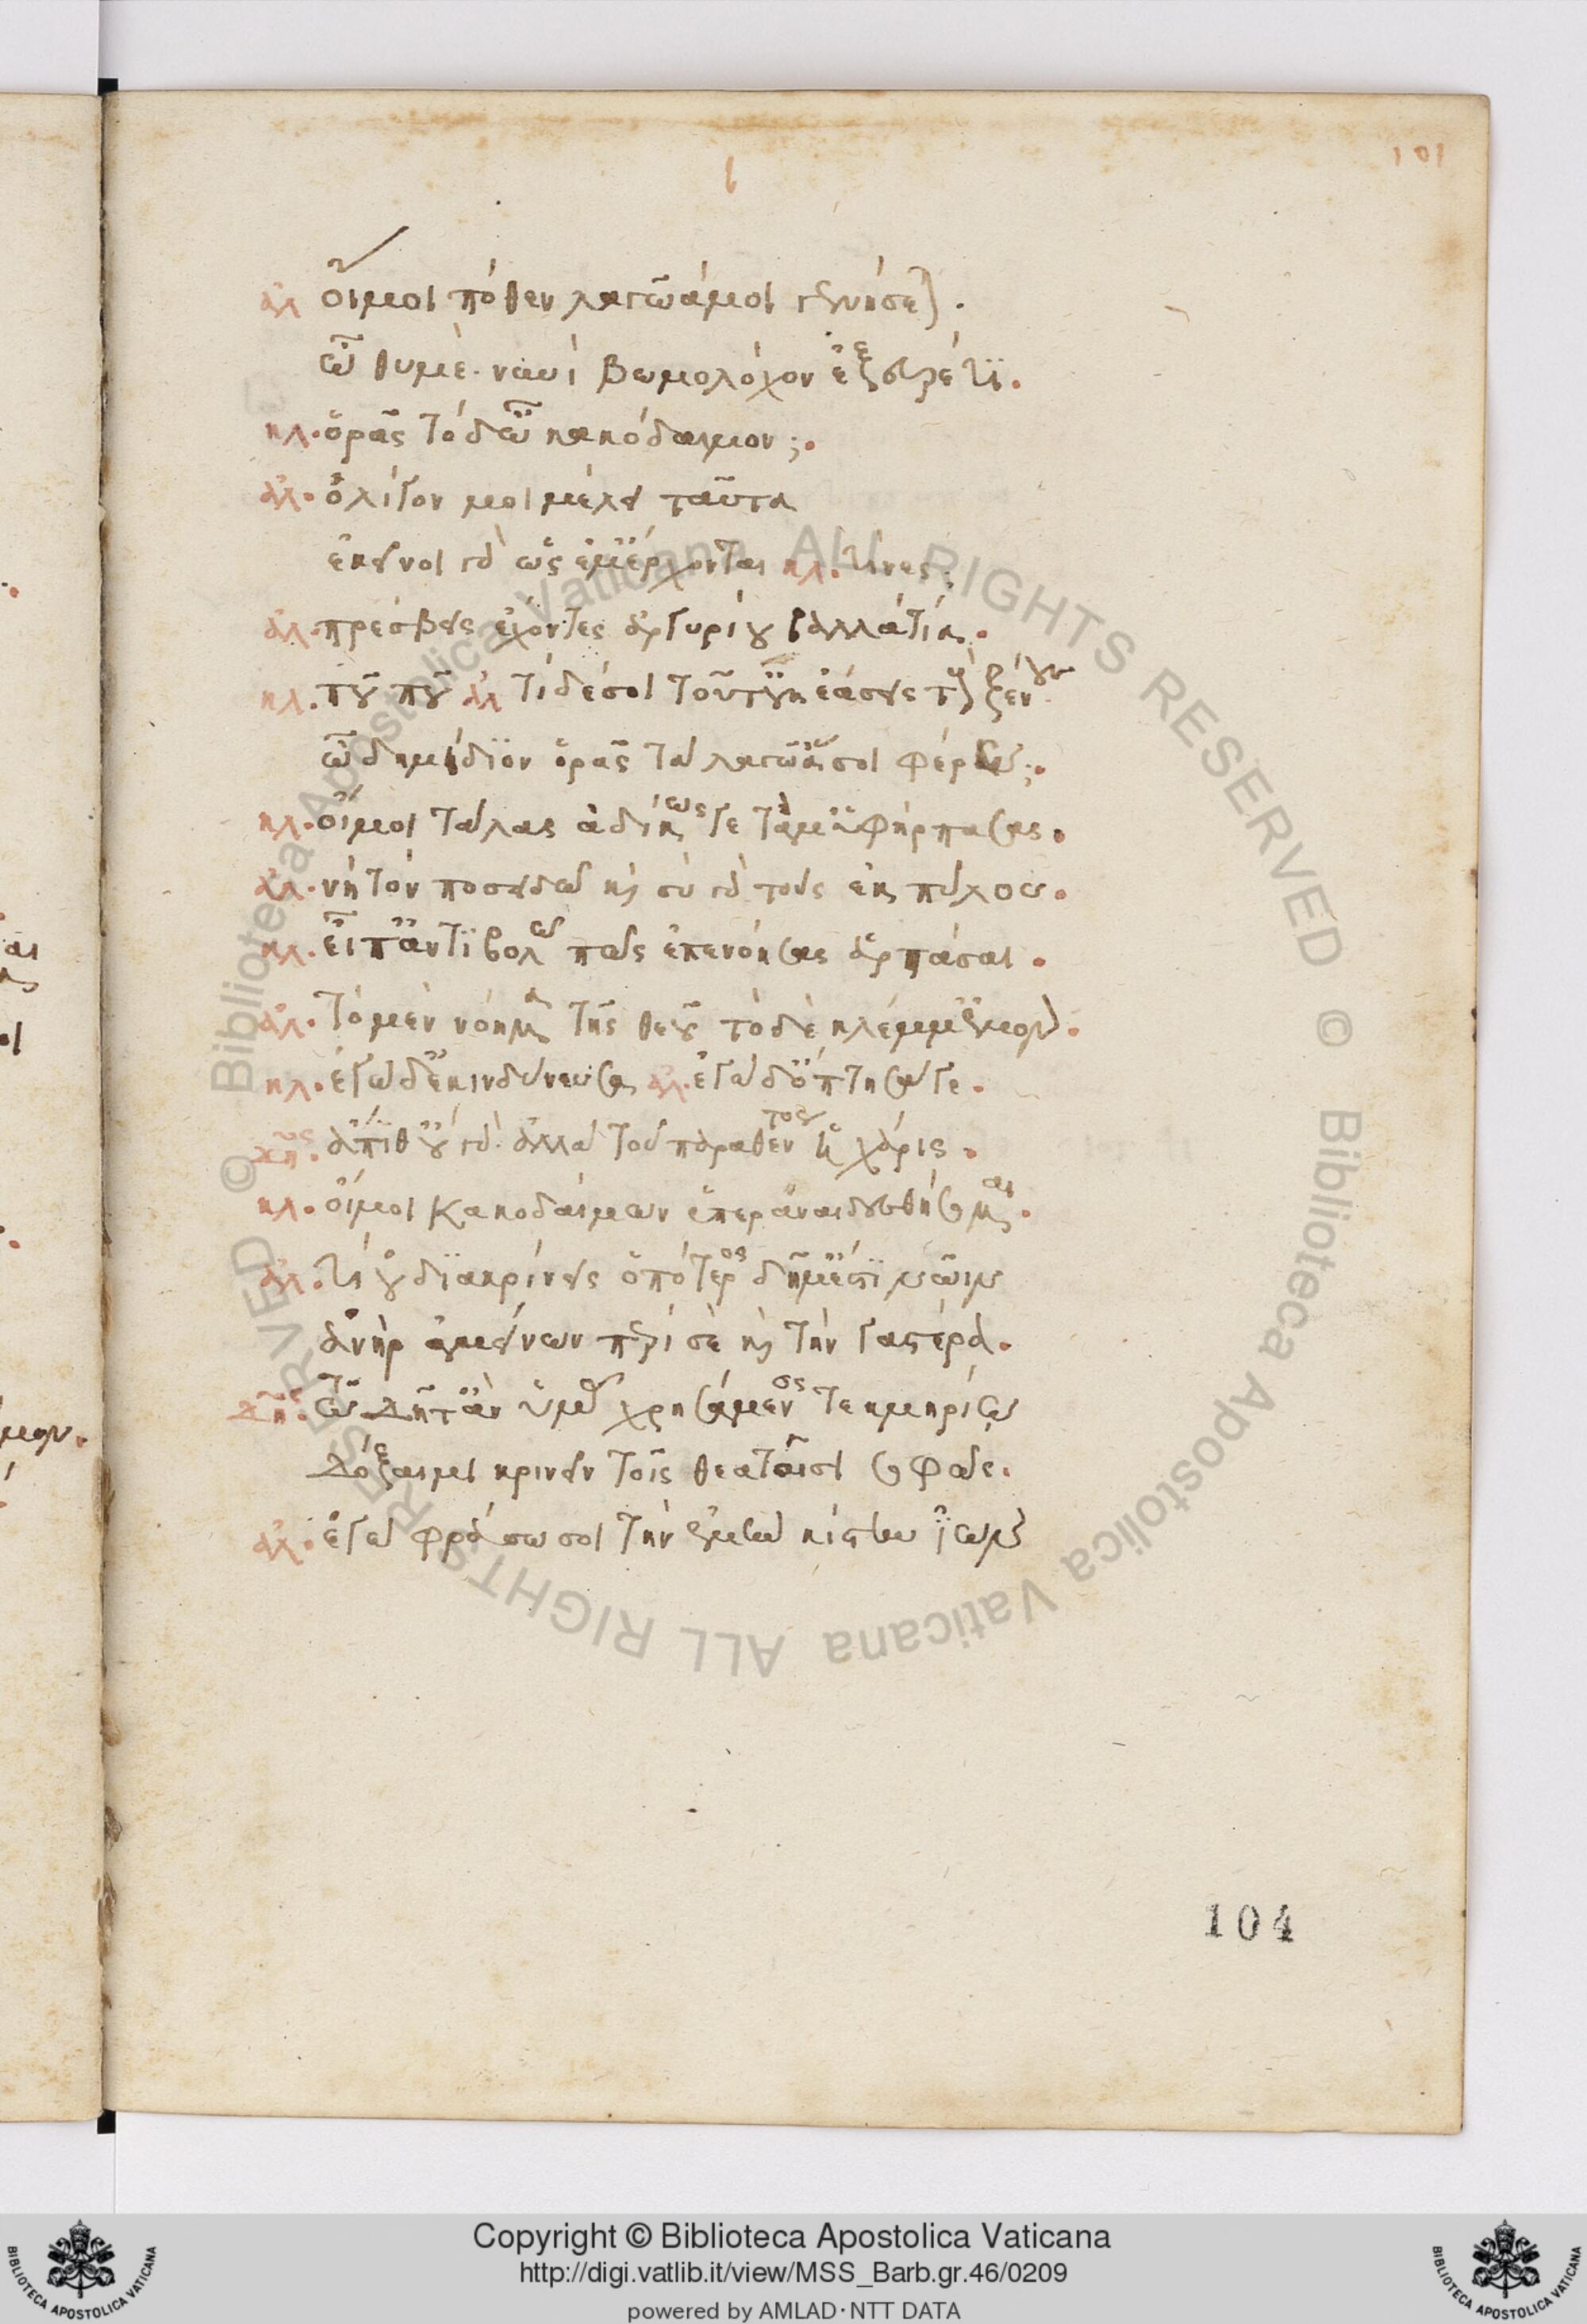 101
ἀλ οἴμοι πόθεν λαγῶά μοι γενήσεται.
ὦ θυμὲ νυνὶ βωμολόχον ἔξευρέ τι.
κλ. ὁρᾷς τόδ' ὦ κακόδαιμον;
ἀλ. ὀλίγον μοι μέλει ταῦτα
ἐκεινοὶ γὰρ ὡς ἔμ' ἔρχονται κλ. τίνες;
ἀλ. πρέσβεις ἔχοντες ἀργυρίου βαλλάτια.
κλ. ποῦ ποῦ ἀλ τί δέ σοι τοῦτ' οὐκ ἐάσεις τοὺς ξένους
ὦ δημίδιον ὁρᾷς τὰ λαγῶά σοι φέρω;
κλ. οἴμοι τάλας ἀδίκως γε τἄμ' ὑφήρπασας.
ἀλ. νὴ τὸν ποσειδῶ καὶ σὺ γὰρ τοὺς ἐκ πύλου.
κλ. εἴπ' ἀντιβολῶ πῶς ἐπενόησας ἁρπάσαι.
ἀλ. τὸ μὲν νόημα τῆς θεοῦ τὸ δὲ κλέμμ' ἐμόν.
κλ. ἐγὼ δ' ἐκινδύνευσα ἀλ. ἐγὼ δ' ὤπτησά γε.
δῆμος. ἄπιθ' οὐ γὰρ ἀλλὰ τοῦ παραθέντος ἡ χάρις.
κλ. οἴμοι κακοδαίμων ὑπεραναιδεσθήσομαι.
ἀλ. τί οὐ διακρίνεις ὁπότερος δῆμ' ἐστὶ νῶιν
ἀνὴρ ἀμείνων περὶ σὲ καὶ τὴν γαστέρα.
δῆμος ὦ δῆτ' ἂν ὑμᾶς χρησάμενος τεκμηρίῳ
δόξαιμι κρίνειν τοῖς θεαταῖσι σοφῶς.
ἀλ. ἐγὼ φράσω σοι τὴν ἐμὴν κίστην ἰὼν
104
Copyright © Biblioteca Apostolica Vaticana
http://digi.vatlib.it/view/MSS_Barb.gr.46/0209
powered by AMLAD·NTT DATA